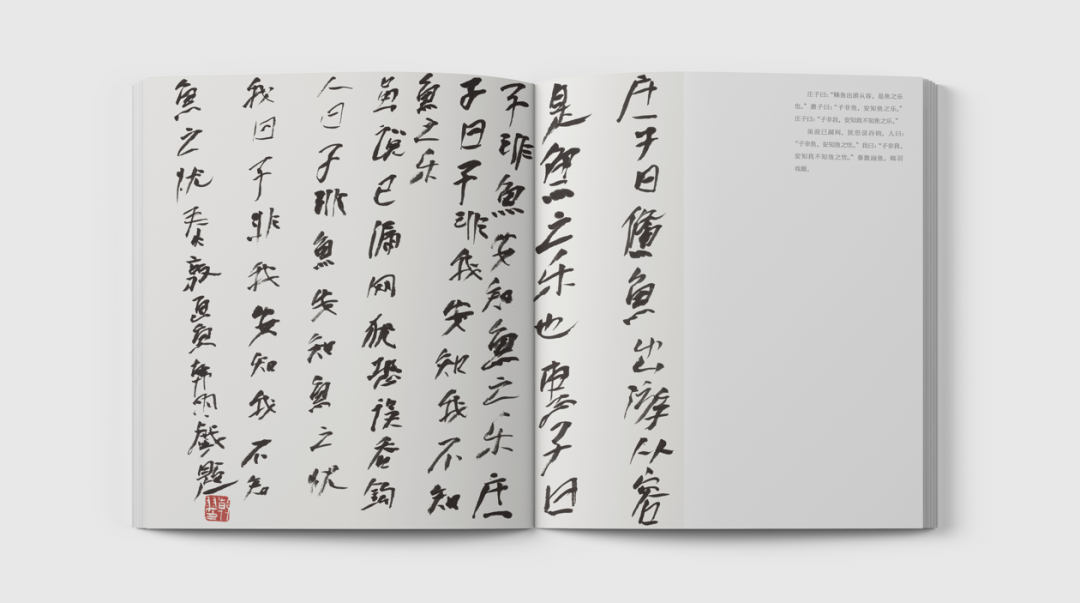 庄子曰：“鲦鱼出游从容，是鱼之乐
也。”惠子曰：“子非鱼，安知鱼之乐。”
庄子曰：“子非我，安知我不知鱼之乐。”
虽说已漏网，犹恐误吞钩。人曰：
“子非鱼，安知鱼之忧。”我曰：“子非我，
安知我不知鱼之忧。”秦敦画鱼，韩羽
戏题。
庄子曰鯈魚出游从容
是魚之乐也惠子曰
子非魚安知魚之乐庄
子曰子非我安知我不知
魚之乐
虽說已漏网犹恐误吞鈎
人曰子非魚安知魚之忧
我曰子非我安知我不知
魚之忧秦敦画魚韩羽戲題